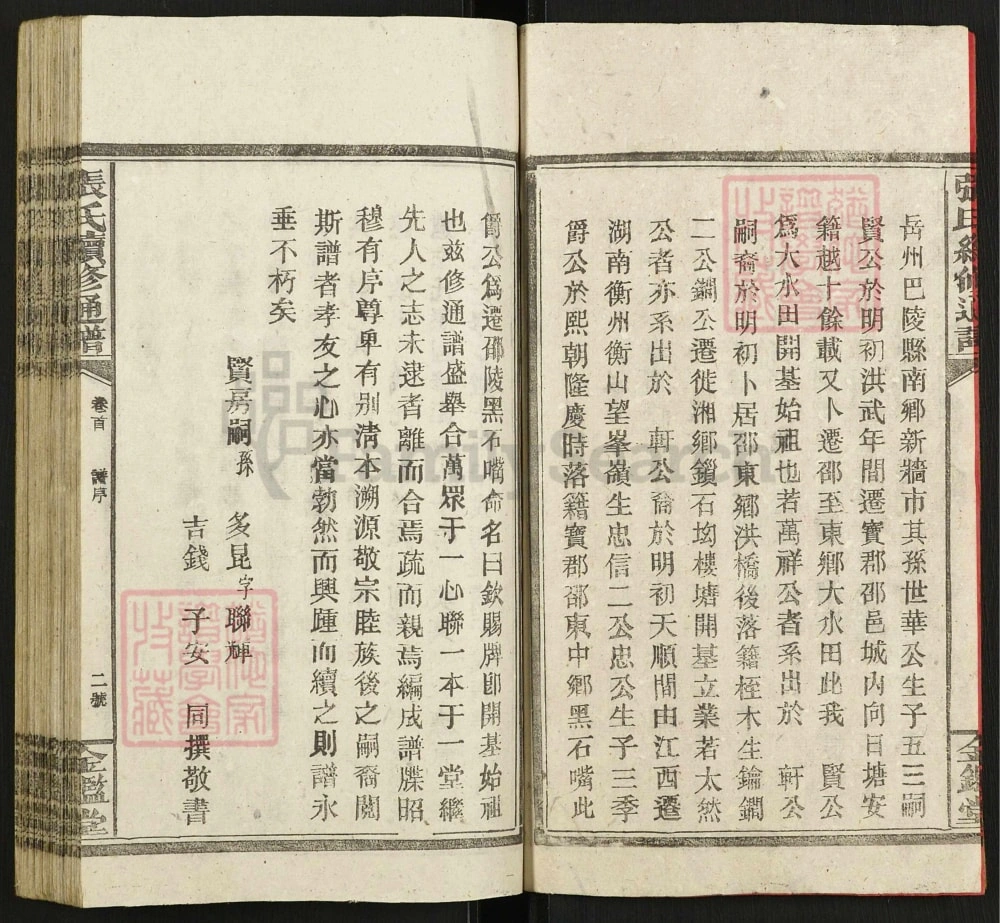 岳州巴陵縣南鄉新牆市其孫世華公生子五三嗣
賢公於明初洪武年間遷寶郡邵邑城內向日塘安
籍越十餘載又卜遷邵至東鄉大水田此我　賢公
為大水田開基始祖也若萬祥公者系出於　軒公
嗣裔於明初卜居邵東鄉洪橋後落籍桎木生鑰鐧
二公鐧公遷徙湘鄉鎖石坳樓塘開基立業若太然
公者亦系出於　軒公裔於明初天順間由江西遷
湖南衡州衡山望峯嶺生忠信二公忠公生子三季
爵公於熙朝隆慶時落籍寶郡邵東中鄉黑石嘴此
爵公為遷邵陵黑石嘴命名曰欽賜牌卽開基始祖
也玆修通譜盛舉合萬眾于一心聯一本于一堂繼
先人之志未逮者離而合焉疏而親焉編成譜牒昭
穆有序尊卑有别清本溯源敬宗睦族後之嗣裔閱
斯譜者孝友之心亦當勃然而興踵而續之則譜永
垂不朽矣
賢房嗣孫　多昆字聯輝
吉錢　子安　同撰敬書
張氏續修通譜　卷首　譜序　二號　金鑑堂
FamilySearch